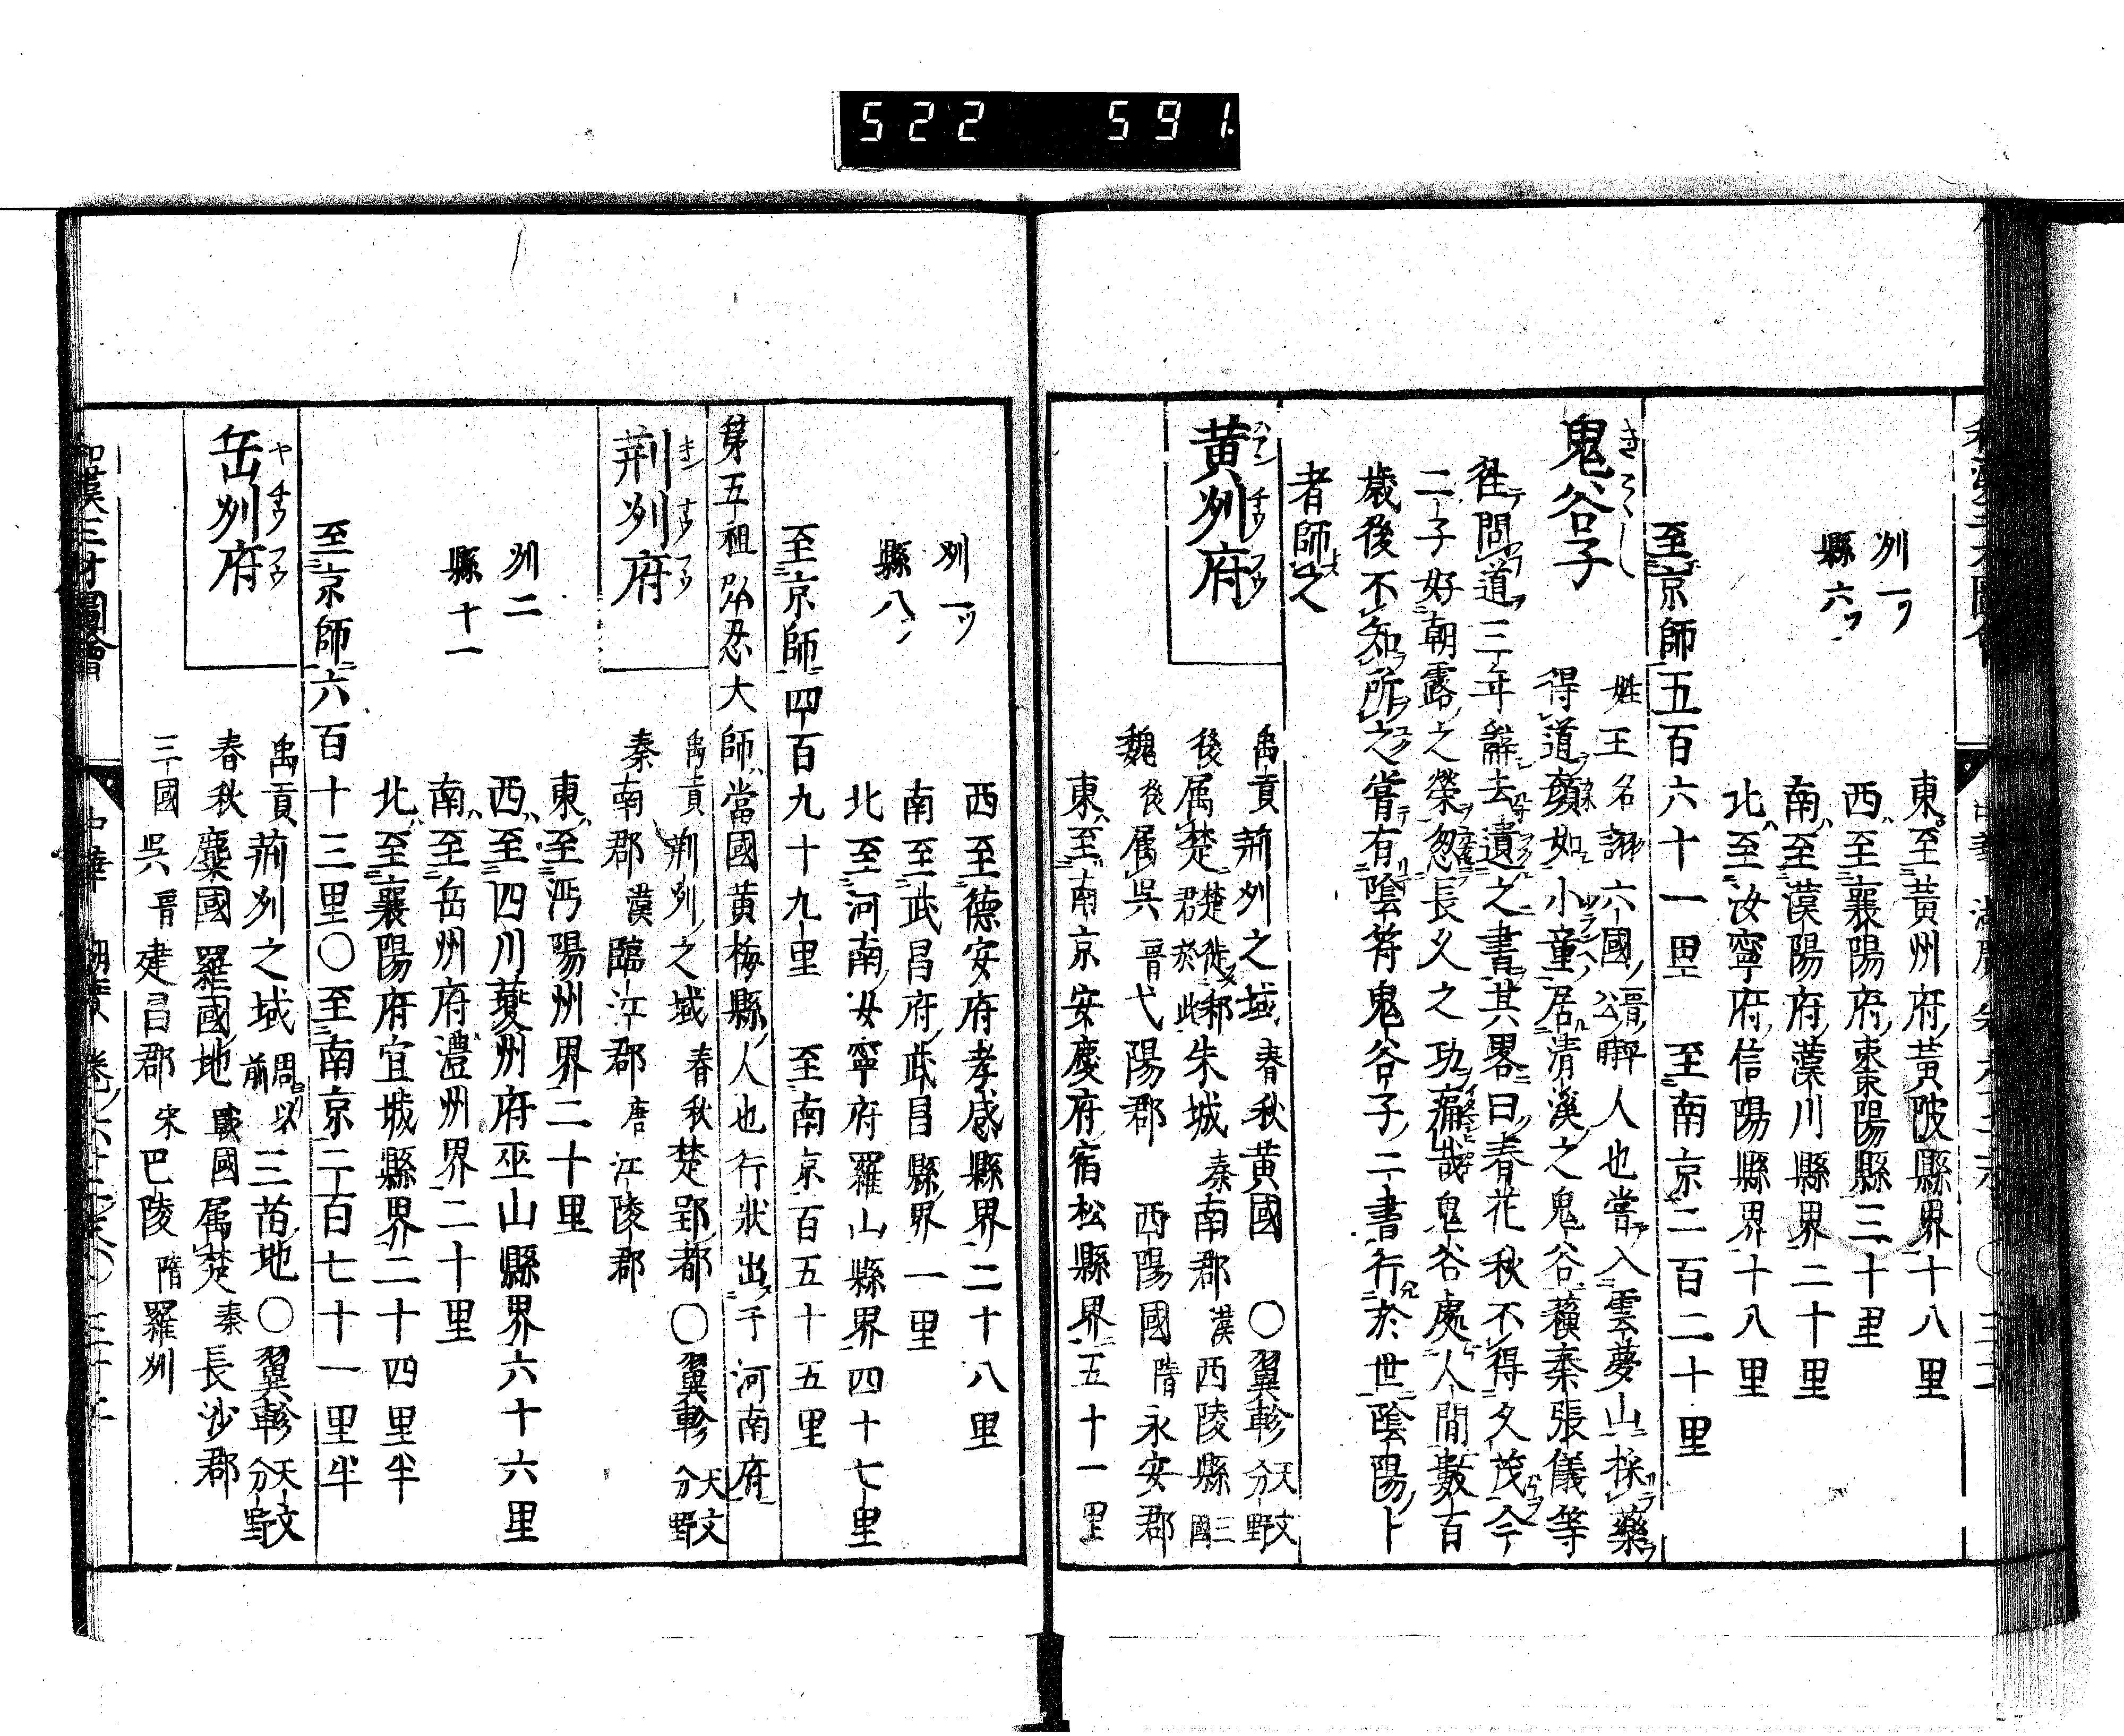 522 591.
州一ツ
縣六ツ
東至黃州府黃陂縣界十八里
西至襄陽府棗陽縣三十里
南至漢陽府漢川縣界二十里
北至汝寧府信陽縣界十八里
至京師五百六十一里 至南京二百二十里
鬼谷子
姓王名詡六國晉平公時人也嘗入雲夢山採藥
得道顏如小童居清溪之鬼谷蘇秦張儀等
往問道三年辭去遺之書其畧曰春花秋不得久茂今
二子好朝露之榮忽長久之功痛哉鬼谷處人間數百
歲後不知所之嘗有陰符鬼谷子二書行於世陰陽卜
者師之
黃州府
禹貢荊州之域春秋黃國 〇翼軫天文分野
後属楚楚徙邾君於此邾朱城秦南郡漢西陵縣三國
魏後属吳晉弋陽郡 西陽國隋永安郡
東至南京安慶府宿松縣界五十一里
西至德安府孝感縣界二十八里
南至武昌府武昌縣界一里
北至河南汝寧府羅山縣界四十七里
州一ツ
縣八ツ
至京師四百九十九里 至南京百五十五里
第五祖弘忍大師當國黃梅縣人也行狀出于河南府
荊州府
禹貢荊州之域春秋楚郢都〇翼軫天文分野
秦南郡漢臨江郡唐江陵郡
東至沔陽州界二十里
西至四川夔州府巫山縣界六十六里
南至岳州府澧州界二十里
北至襄陽府宜城縣界二十四里半
州二
縣十一
至京師六百十三里〇至南京二百七十一里半
岳州府
禹貢荊州之域周以前三苗地〇翼軫天文分野
春秋麇國羅國地戰國属楚秦長沙郡
三國吳晉建昌郡宋巴陵隋羅州
和漢三才圖會